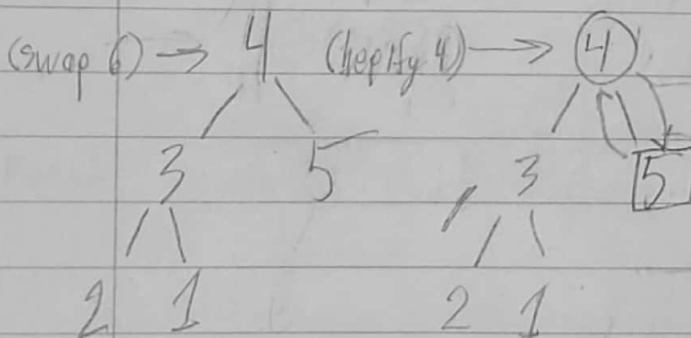 (swap 6) → 4 (hepify 4) → 4
3 5 3 5
2 1 2 1